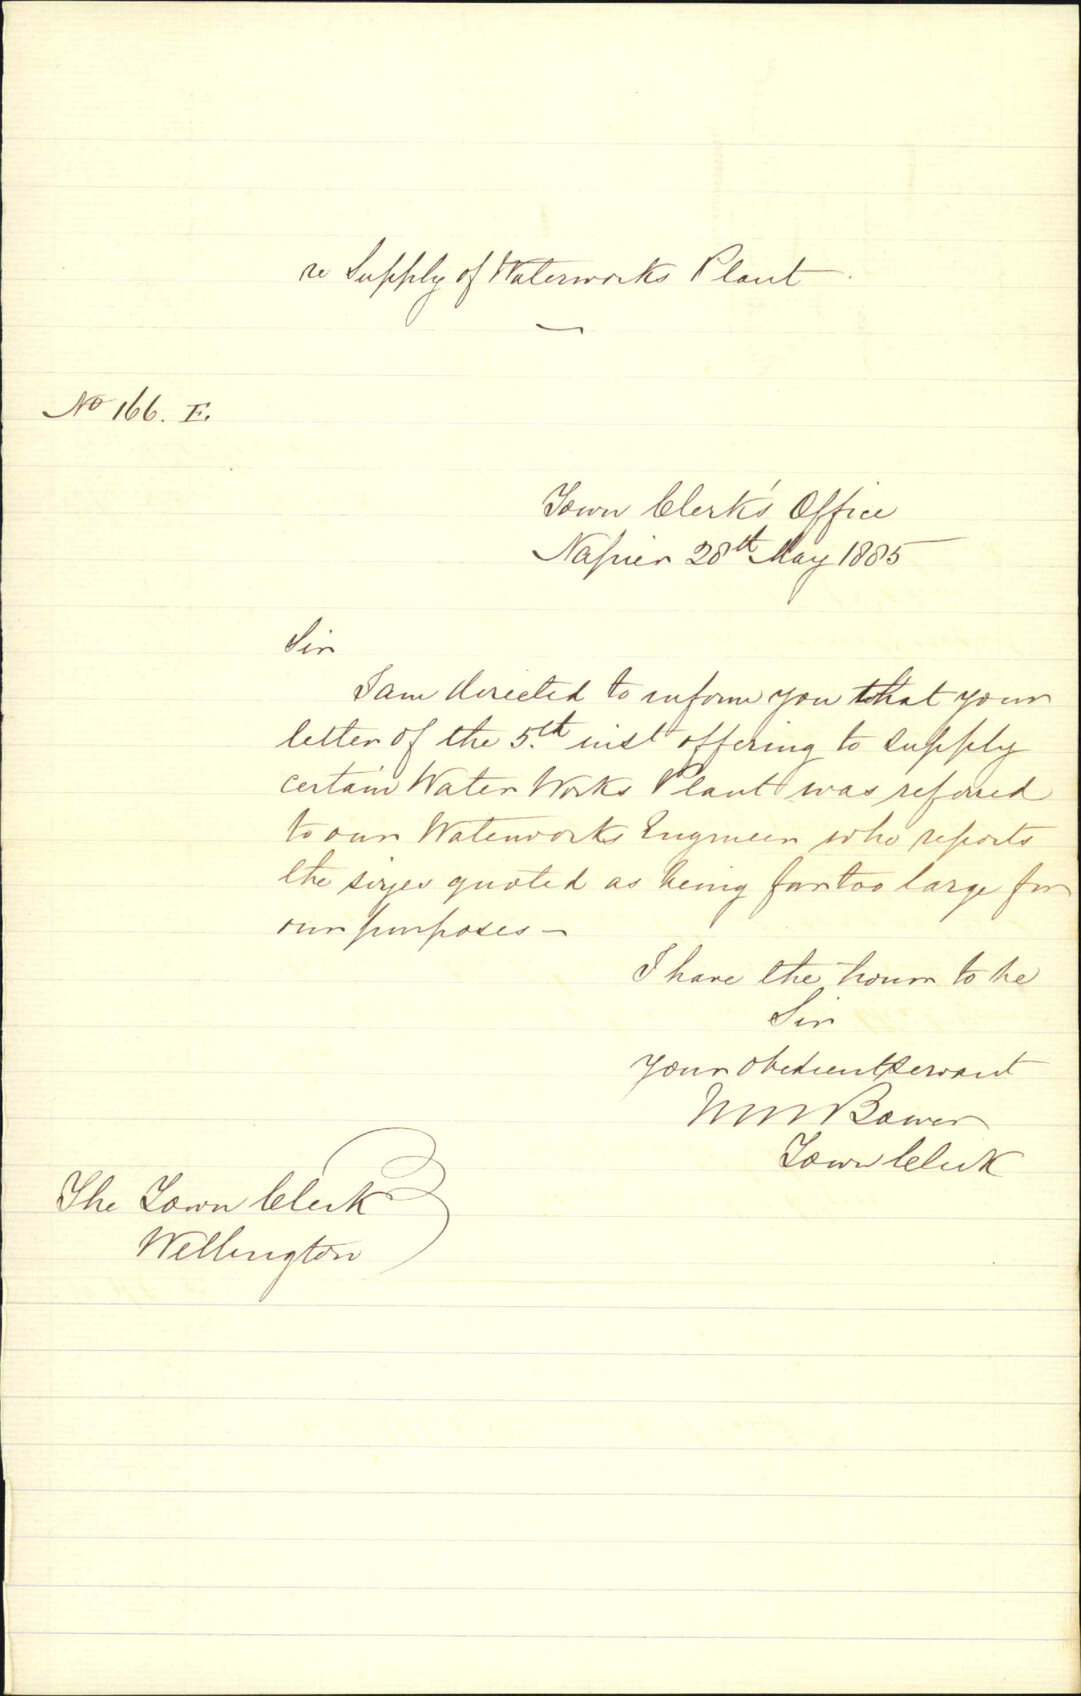 re Supply of Waterworks Plant
No 166. E.
Town Clerk's Office
Napier 28th May 1885
Sir
I am directed to inform you that your
letter of the 5th inst offering to supply
certain Water Works Plant was referred
to our Waterworks Engineer who reports
the sizes quoted as being far too large for
our purposes —
I have the honor to be
Sir
Your obedient servant
Bower
Town Clerk
The Town Clerk
Wellington